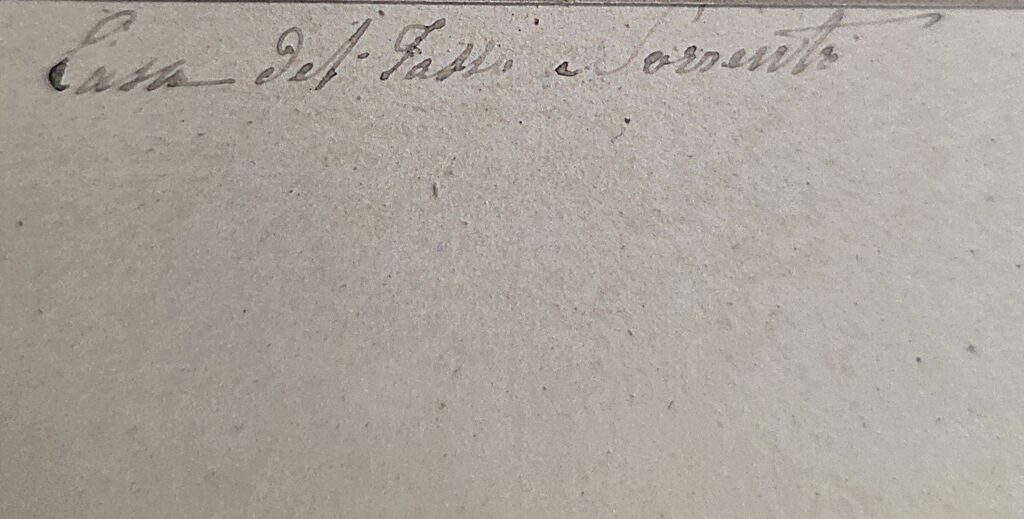 Casa del Tasso a Sorrento